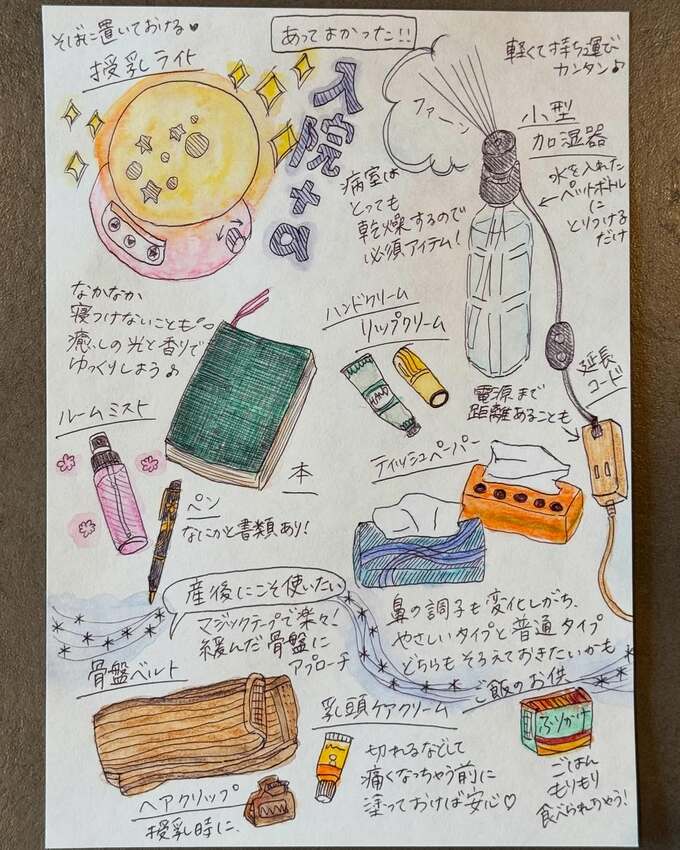 あってよかった!!
そばに置いておける♥
授乳ライト
入院
なかなか
寝つけないことも
癒しの光と香りで
ゆっくりしよう♪
ルームミスト
本
ペン
なにかと書類あり!
軽くて持ち運び
カンタン♪
ファーン
小型
加湿器
水を入れた
ペットボトル
に
とりつける
だけ
病室は
とっても
乾燥するので
必須アイテム!
ハンドクリーム
リップクリーム
電源まで
距離あることも
延長
コード
ティッシュペーパー
鼻の調子も変化しがち、
やさしいタイプと普通タイプ
どちらもそろえておきたいかも
産後にこそ使いたい
マジックテープで楽々!
緩んだ骨盤に
アプローチ
骨盤ベルト
ヘアクリップ
授乳時に、
乳頭ケアクリーム
切れるなどして
痛くなっちゃう前に
塗っておけば安心♡
ご飯のお供
ふりかけ
ごはん
もりもり
食べられちゃう!